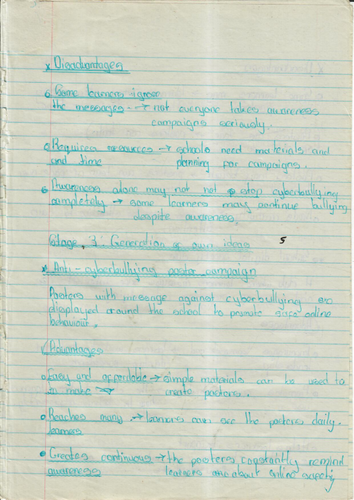 x Disadvantages
o Some learners ignore
the messages - → not everyone takes awareness
campaigns seriously.
o Requires resources → schools need materials and
and time planning for campaigns.
o Awareness alone may not not stop cyberbullying
completely → some learners may continue bullying
despite awareness.
Stage 3: Generation of own ideas 5
x Anti-cyberbullying poster campaign
Posters with message against cyberbullying
displayed around the school to promote safe online
behaviour.
Advantages
o Easy and affordable → simple materials can be used to
to make create posters.
o Reaches many → learners can see the posters daily.
learners
o Creates continuous → the posters constantly remind
awareness learners about online safety